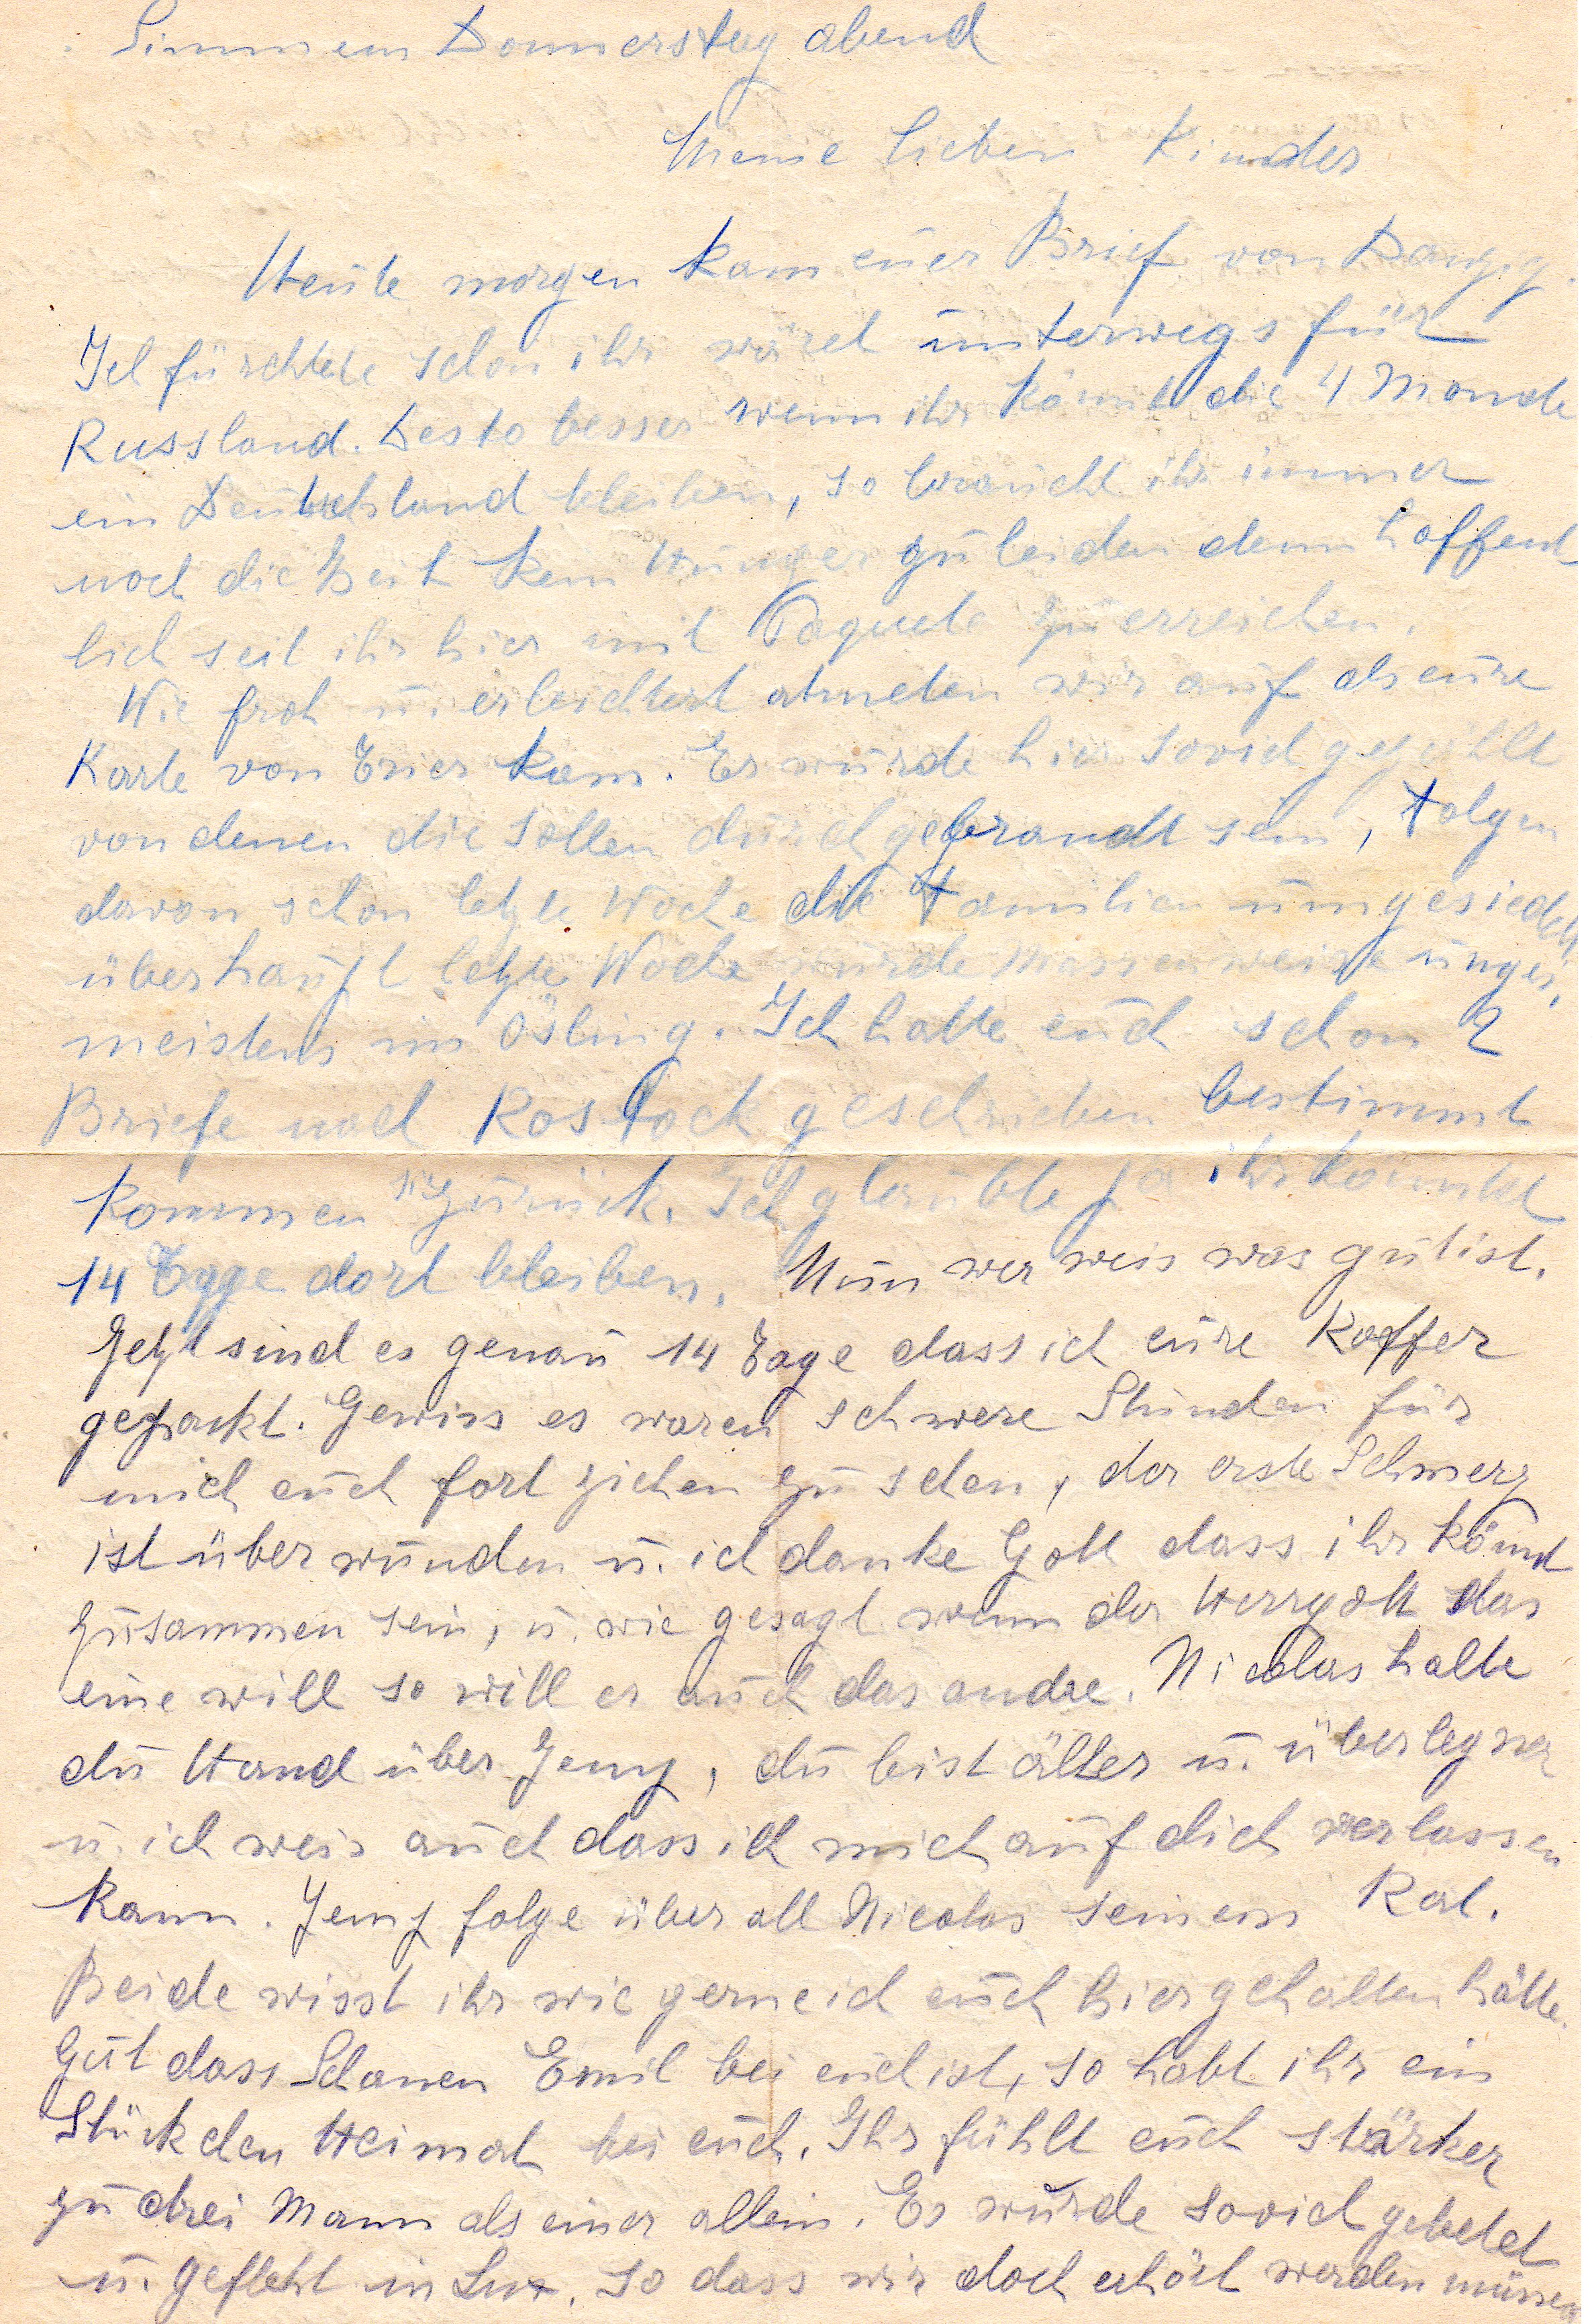 Simmern Donnerstag abend
Meine lieben Kinder
Heute morgen kam euer Brief von Danzig.
Ich fürchtete schon ihr wäret unterwegs für
Russland. Desto besser wenn ihr könnt die 4 Monate
ein Deutschland bleiben, so braucht ihr immer
noch die Zeit kein Hunger zu leiden denn hoffent-
lich seit ihr hier mit Paquete zu erreichen.
Wie froh u. erleichtert atmeten wir auf als eure
Karte von Trier kam. Es wurde hier soviel gezählt
von denen die sollen durchgebrandt sein, folgen
davon schon letzte Woche die Familien umgesiedelt
überhaupt letzte Woche wurde massenweise umges,
meistens im Ösling. Ich hatte euch schon 2
Briefe nach Rostock geschrieben bestimmt
kommen sie zurück. Ich glaubte ja ihr könntet
14 Tage dort bleiben. Nun wer weis was gut ist.
Jetzt sind es genau 14 Tage dass ich eure Koffer
gepackt. Gewiss es waren schwere Stunden für
mich euch fort ziehen zu sehen, der erste Schmerz
ist überwunden u. ich danke Gott dass ihr könnt
zusammen sein, u. wie gesagt wenn der Herrgott das
eine will so will er auch das andre. Nicolas halte
du Hand über Jemy, du bist älter u. überlegner
u. ich weis auch dass ich mich auf dich verlassen
kann. Jemy folge über all Nicolas seinem Rat.
Beide wisst ihr wie gerne ich euch hier gehalten hätte.
Gut dass Schanen Emil bei euch ist, so habt ihr ein
Stück den Heimat bei euch. Ihr fühlt euch stärker
zu drei Mann als einer allein. Es wurde soviel gebetet
u. gefleht in Lux. so dass wir doch erhört werden müssen